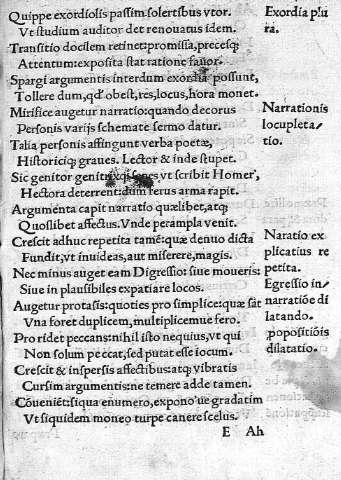 Quippe exordiolis passim solertibus vtor.
Vt studium auditor det renouatus idem.
Transitio docilem retinet: promissa, precesq;
Attentum: exposita stat ratione fauor.
Spargi argumentis interdum exordia possunt,
Tollere dum, qđ obest, res, locus, hora monet.
Mirifice augetur narratio: quando decorus
Personis varijs schemate sermo datur.
Talia personis affingunt verba poetæ,
Historiciq; graues. Lector & inde stupet.
Sic genitor vt scribit Homer',
Hectora deterrent: dum ferus arma rapit.
Argumenta capit narratio quælibet, atq;
Quoslibet affectus. Vnde perampla venit.
Crescit adhuc repetita tamē: quæ denuo dicta
Fundit, vt inuideas, aut miserere, magis.
Nec minus auget eam Digressio: siue moueris:
Siue in plausibiles expatiare locos.
Augetur protasis: quoties pro simplice: quæ sat
Vna foret duplicem, multiplicemue fero.
Pro ridet peccans: nihil isto nequius, vt qui
Non solum peccat, sed putat esse iocum.
Crescit & inspersis affectibus: atq; vibratis
Cursim argumentis: ne temere adde tamen.
Cōueniēt: siqua enumero, expono'ue gradatim
Vt siquidem moneo turpe canere scelus.
E Ah
Exordia plu
ra.
Narrationis
locupleta/
tio.
Naratio ex
plicatius re
petita.
Egressio in/
narratiōe di
latando.
ppositiōis
dilatatio.